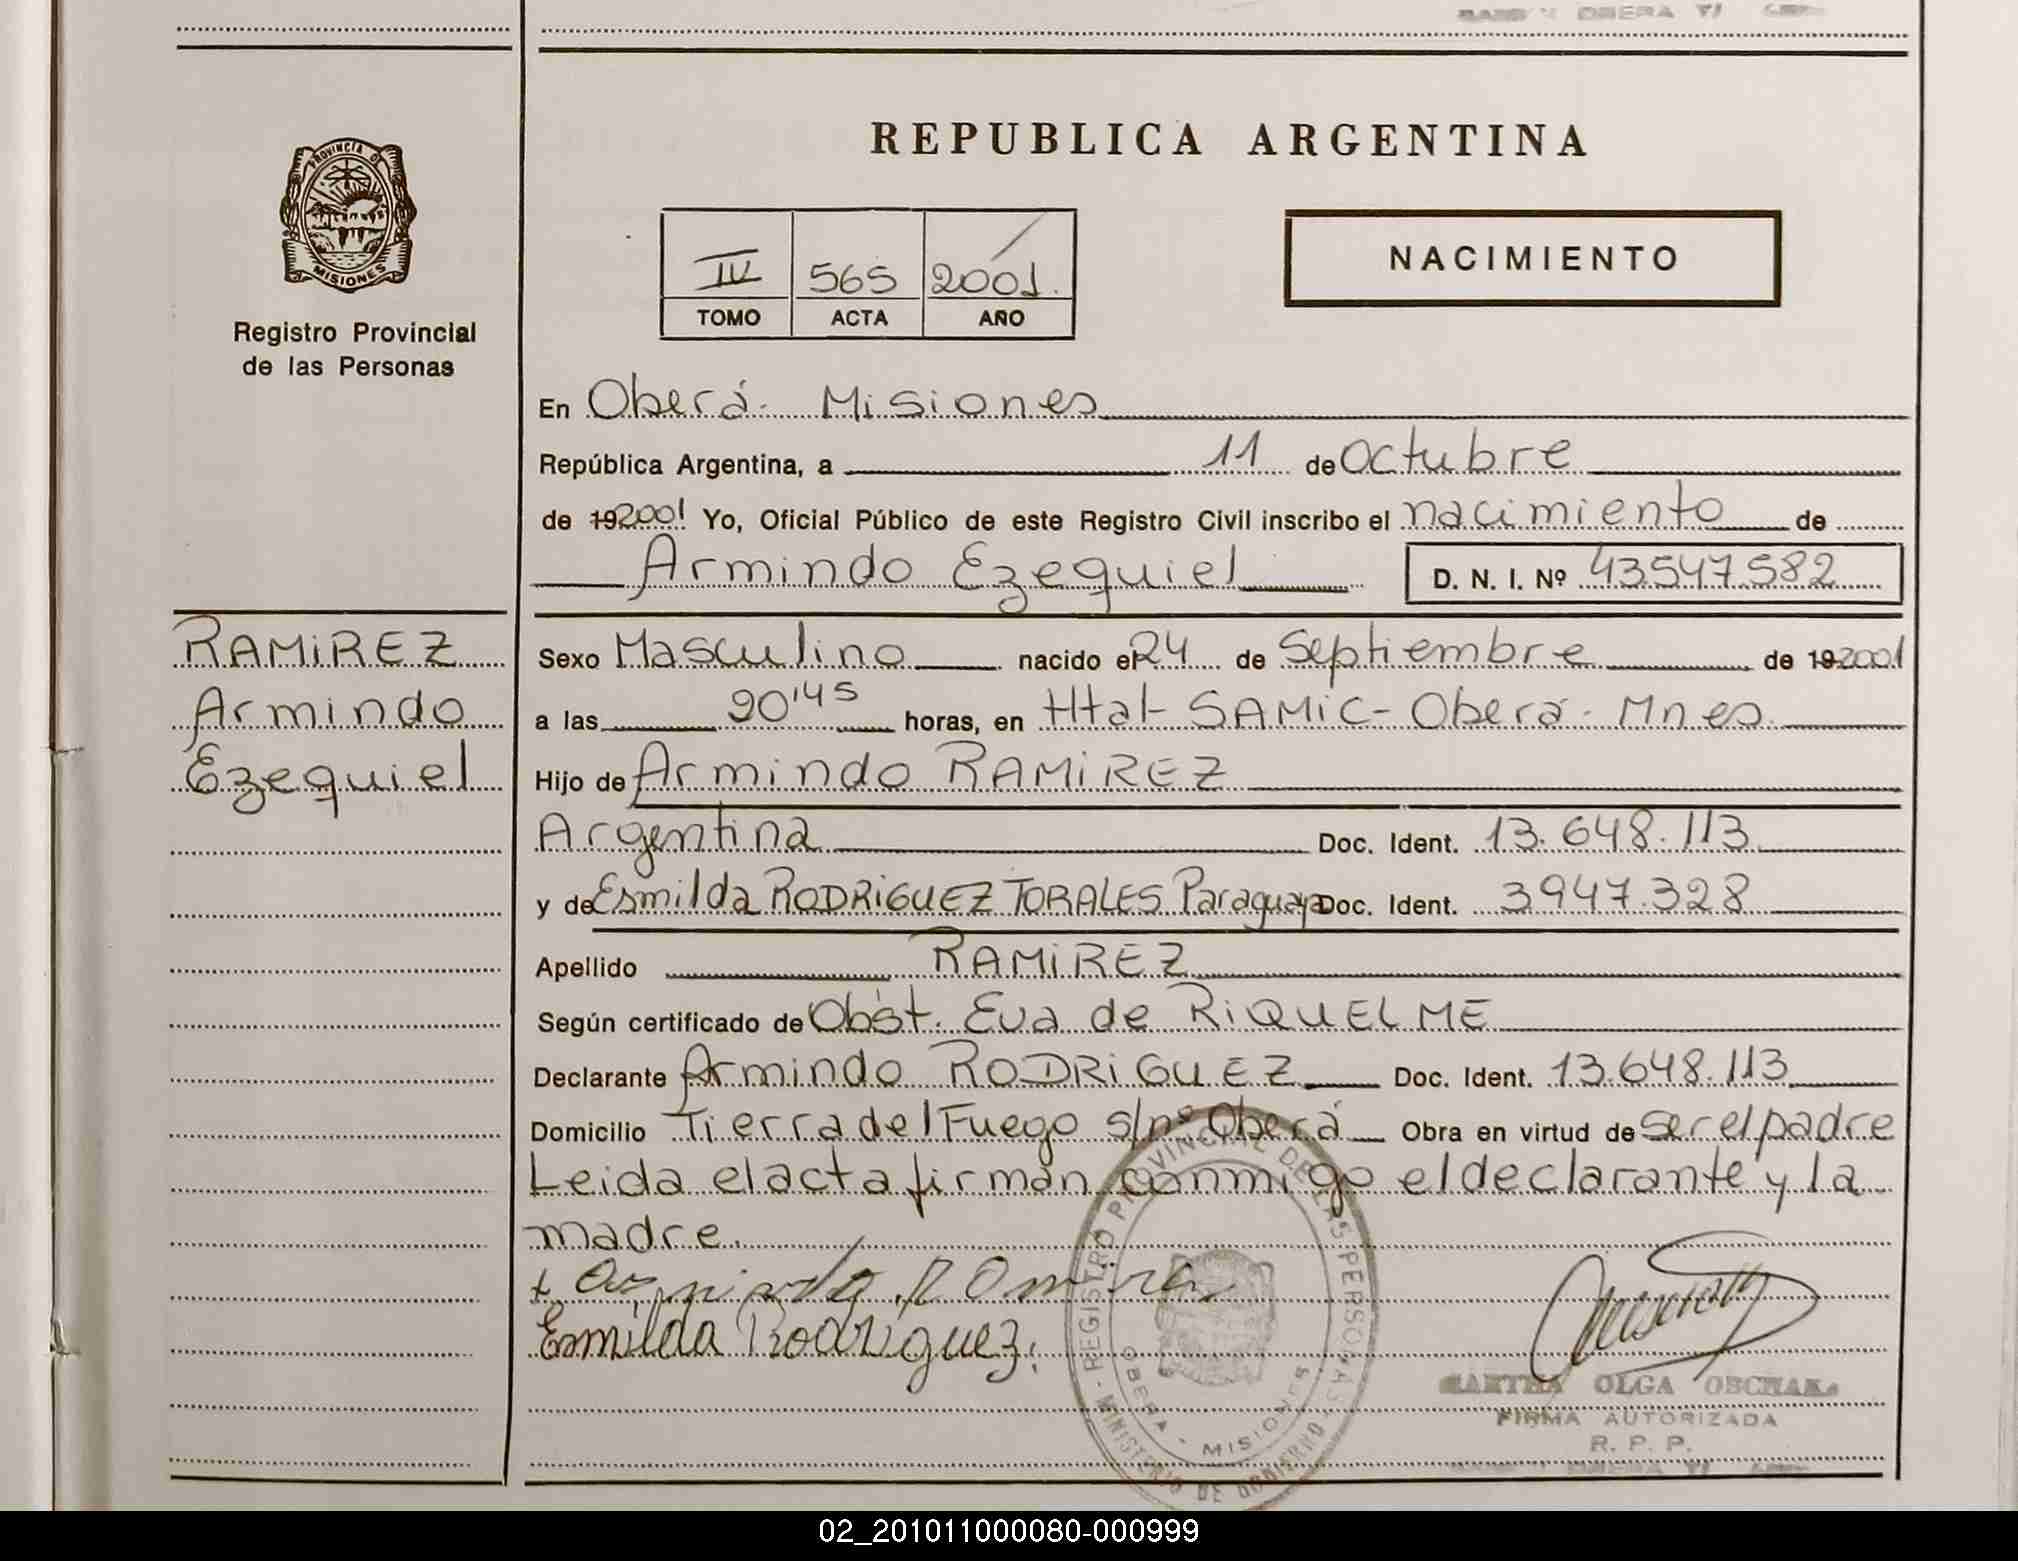 REPUBLICA ARGENTINA
PROVINCIA D
MISIONES
Registro Provincial
de las Personas
IV 565 2001.
TOMO ACTA AÑO
NACIMIENTO
En Oberá. Misiones
República Argentina, a 11 de Octubre
de 192001 Yo, Oficial Público de este Registro Civil inscribo el nacimiento de
Armindo Ezequiel D. N. I. Nº 43547.582
RAMIREZ
Armindo
Ezequiel
Sexo Masculino nacido el 24 de Septiembre de 192001
a las 20'45 horas, en Htal-SAMIC-Oberá. Mnes.
Hijo de Armindo RAMIREZ
Argentina Doc. Ident. 13.648.113
y de Esmilda RODRIGUEZ TORALES Paraguaya Doc. Ident. 3947.328
Apellido RAMIREZ
Según certificado de Obst. Eva de RIQUELME
Declarante Armindo RODRIGUEZ Doc. Ident. 13.648.113
Domicilio Tierra del Fuego s/nº Oberá Obra en virtud de ser el padre
Leida el acta firman conmigo el declarante y la
madre.
Esmilda Rodriguez.
REGISTRO PROVINCIAL DE LAS PERSONAS
MINISTERIO DE GOBIERNO
OBERA - MISIONES
MARTHA OLGA
FIRMA AUTORIZADA
R. P. P.
02_201011000080-000999